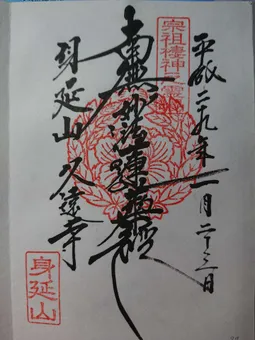 平成二十九年一月二十三日
宗祖棲神
南無妙法蓮華経
身延山久遠寺
身延山